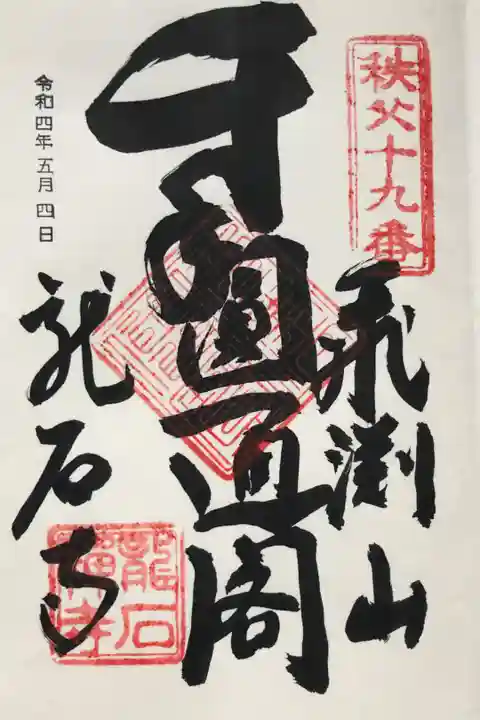 秩父十九番
飛渕山
圓通閣
龍石寺
令和四年五月四日
龍石
寺